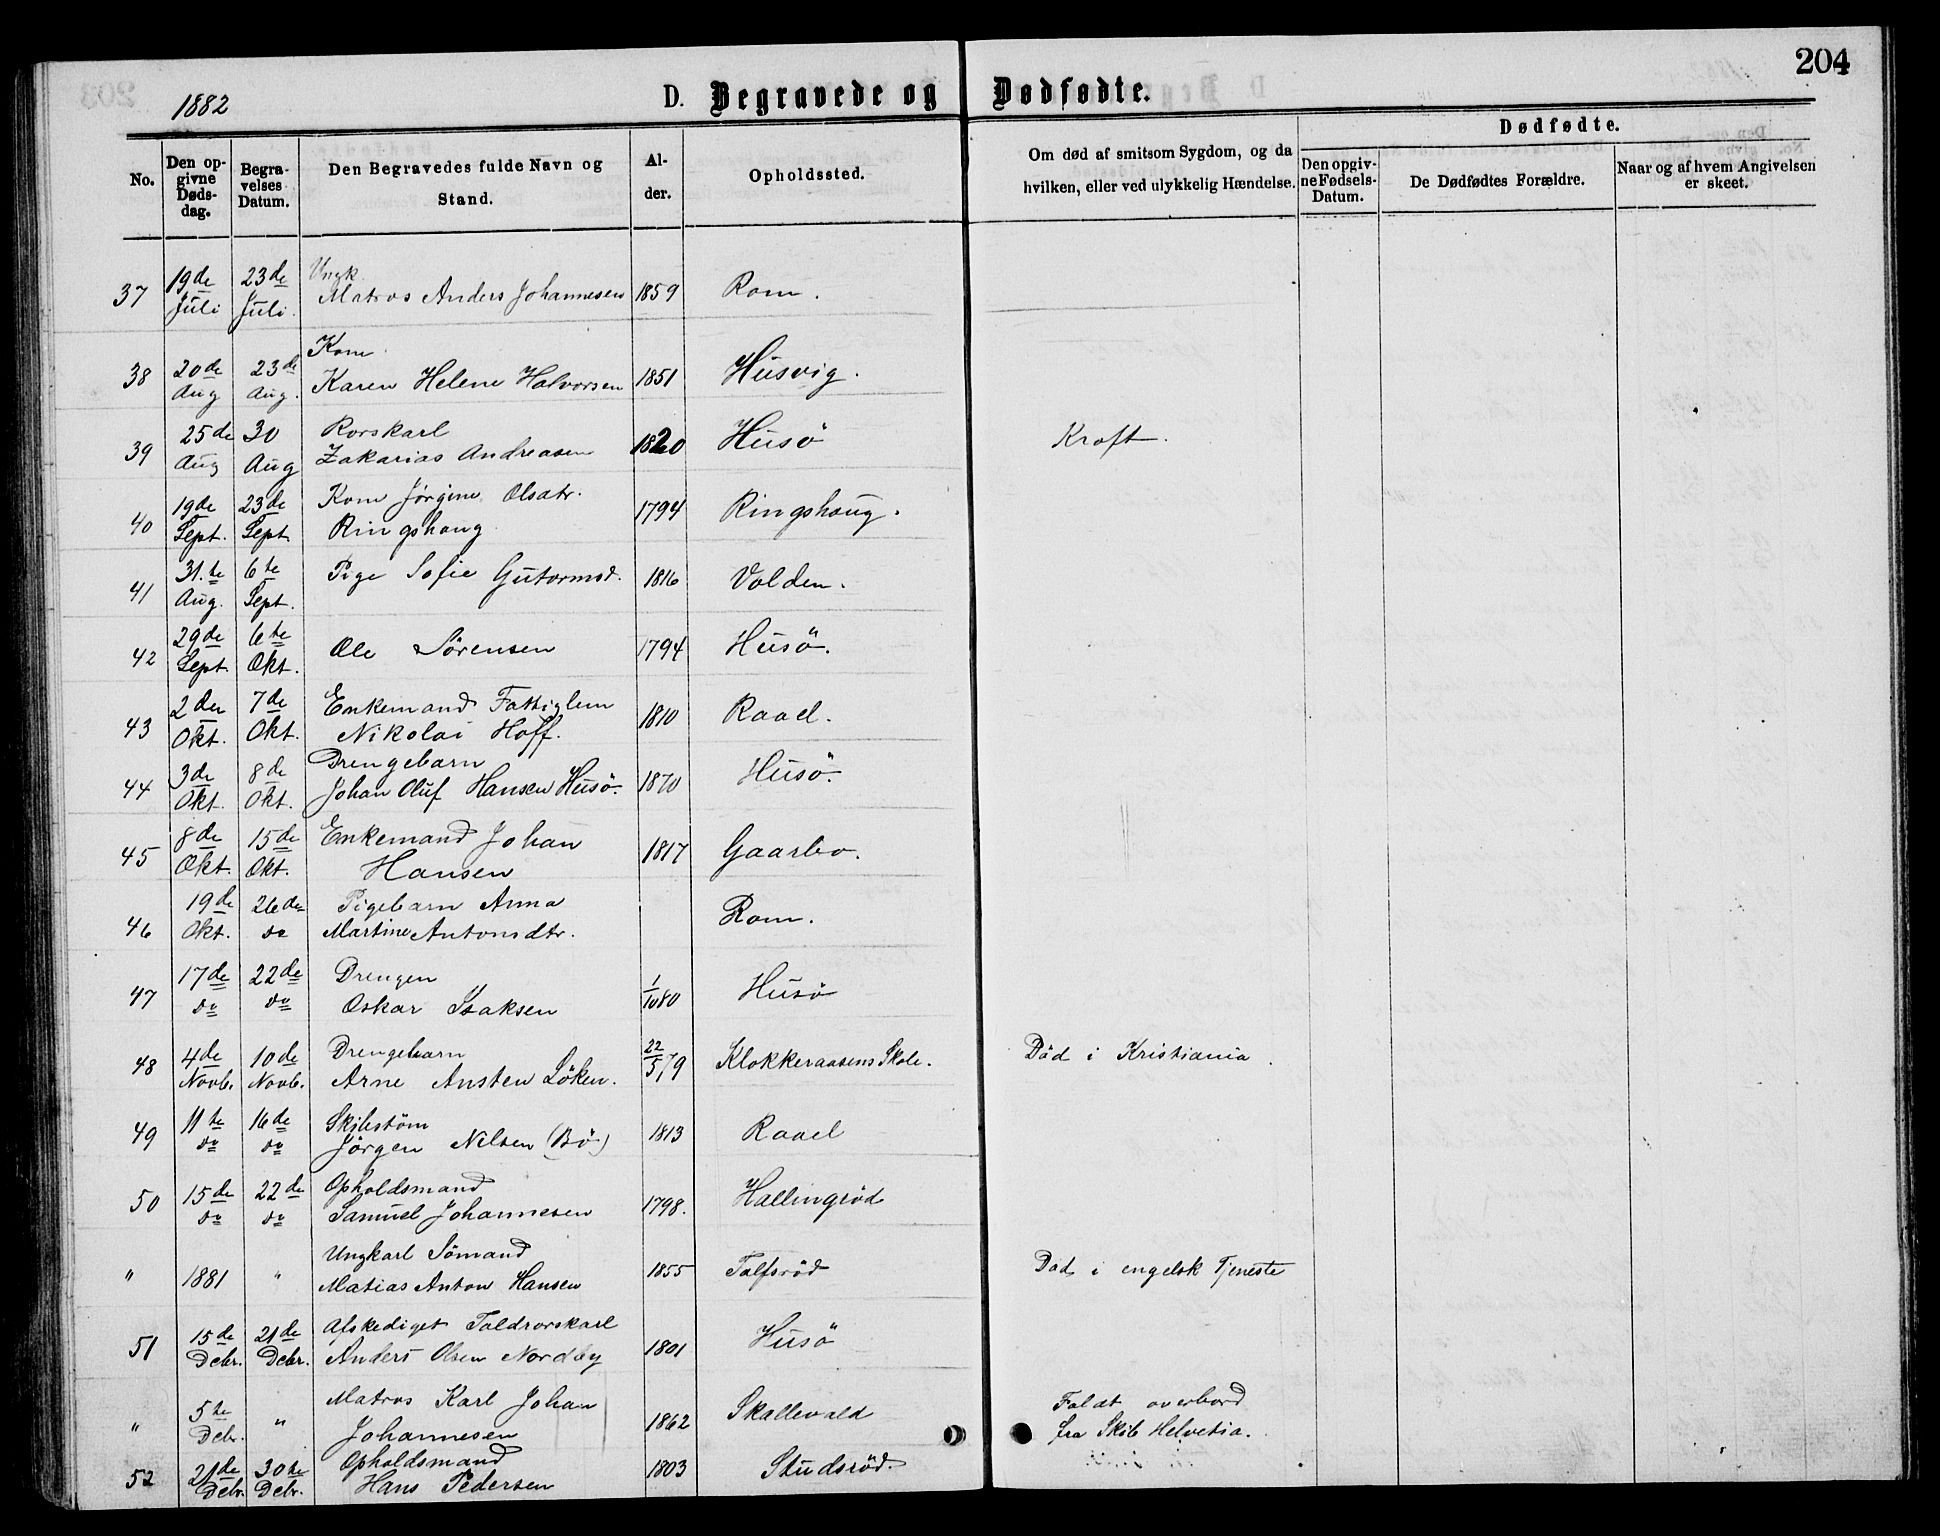 204
1882
D. Begravede og Dødfødte.
No.
Den opgivne Dødsdag.
Begravelses Datum.
Den Begravedes fulde Navn og Stand.
Alder.
Opholdssted.
Om død af smitsom Sygdom, og da hvilken, eller ved ulykkelig Hændelse.
Dødfødte.
Den opgivne Fødsels-Datum.
De Dødfødtes Forældre.
Naar og af hvem Angivelsen er skeet.
37 19de Juli 23de Juli Ungk. Matros Anders Johannesen 1859 Rom.
38 20de Aug 23de Aug. Kone Karen Helene Halvorsen 1851 Husvig.
39 25de Aug 30 Aug Rorskarl Zakarias Andreasen 1820 Husö Kræft.
40 19de Sept. 23de Sept Kone Jörgine Olsdtr. Ringshaug 1794 Ringshaug.
41 31.te Aug. 6te Sept. Pige Sofie Gutormsd. 1816 Volden.
42 29de Sept. 6te Okt. Ole Sörensen 1794 Husö.
43 2den Okt. 7de Okt. Enkemand Fattiglem Nikolai Hoff. 1810 Raael.
44 3de Okt. 8de Okt. Drengebarn Johan Oluf Hansen Husö. 1870 Husö.
45 8de Okt. 15de Okt. Enkemand Johan Hansen 1817 Gaarbo.
46 19de Okt. 26de do Pigebarn Anna Martine Antonsdtr. Rom.
47 17de do 22de do Drengen Oskar Isaksen 1/10 80 Husö
48 4de Novb. 10de Novb. Drengebarn Arne Austen Löken. 22/5 79 Klokkeraasens Skole. Död i Kristiania.
49 11te do 16de do Skibstöm Jörgen Nilsen (Bö) 1813 Raael
50 15de do 22de do Opholdsmand Samuel Johannesen 1798. Hallingröd
" 1881 " Ungkarl Sömand Matias Anton Hansen 1855 Tolfsröd Död i engelsk Tjeneste
51 15de Debr. 21de Debr. Afskediget Toldrorskarl Anders Olsen Nordby 1801 Husö
" 5te Debr. " Matros Karl Johan Johannesen 1862 Skallevold Faldt overbord fra Skib Helvetia.
52 21de Debr. 30te Debr. Opholdsmand Hans Pedersen 1803 Studsröd.